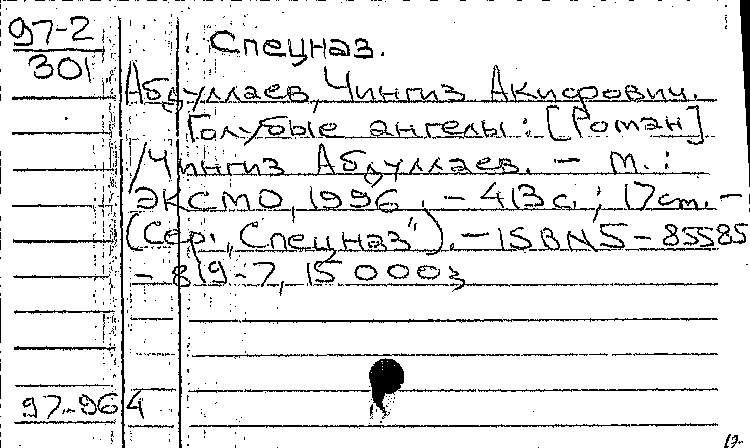 97-2
301
Спецназ.
Абдуллаев, Чингиз Акифович.
Голубые ангелы: [Роман]
/Чингиз Абдуллаев. - М.:
ЭКСМО, 1996. - 413 с.; 17 см. -
(Сер. „Спецназ"). - ISBN 5-85585
- 819-7, 15000э
97-964